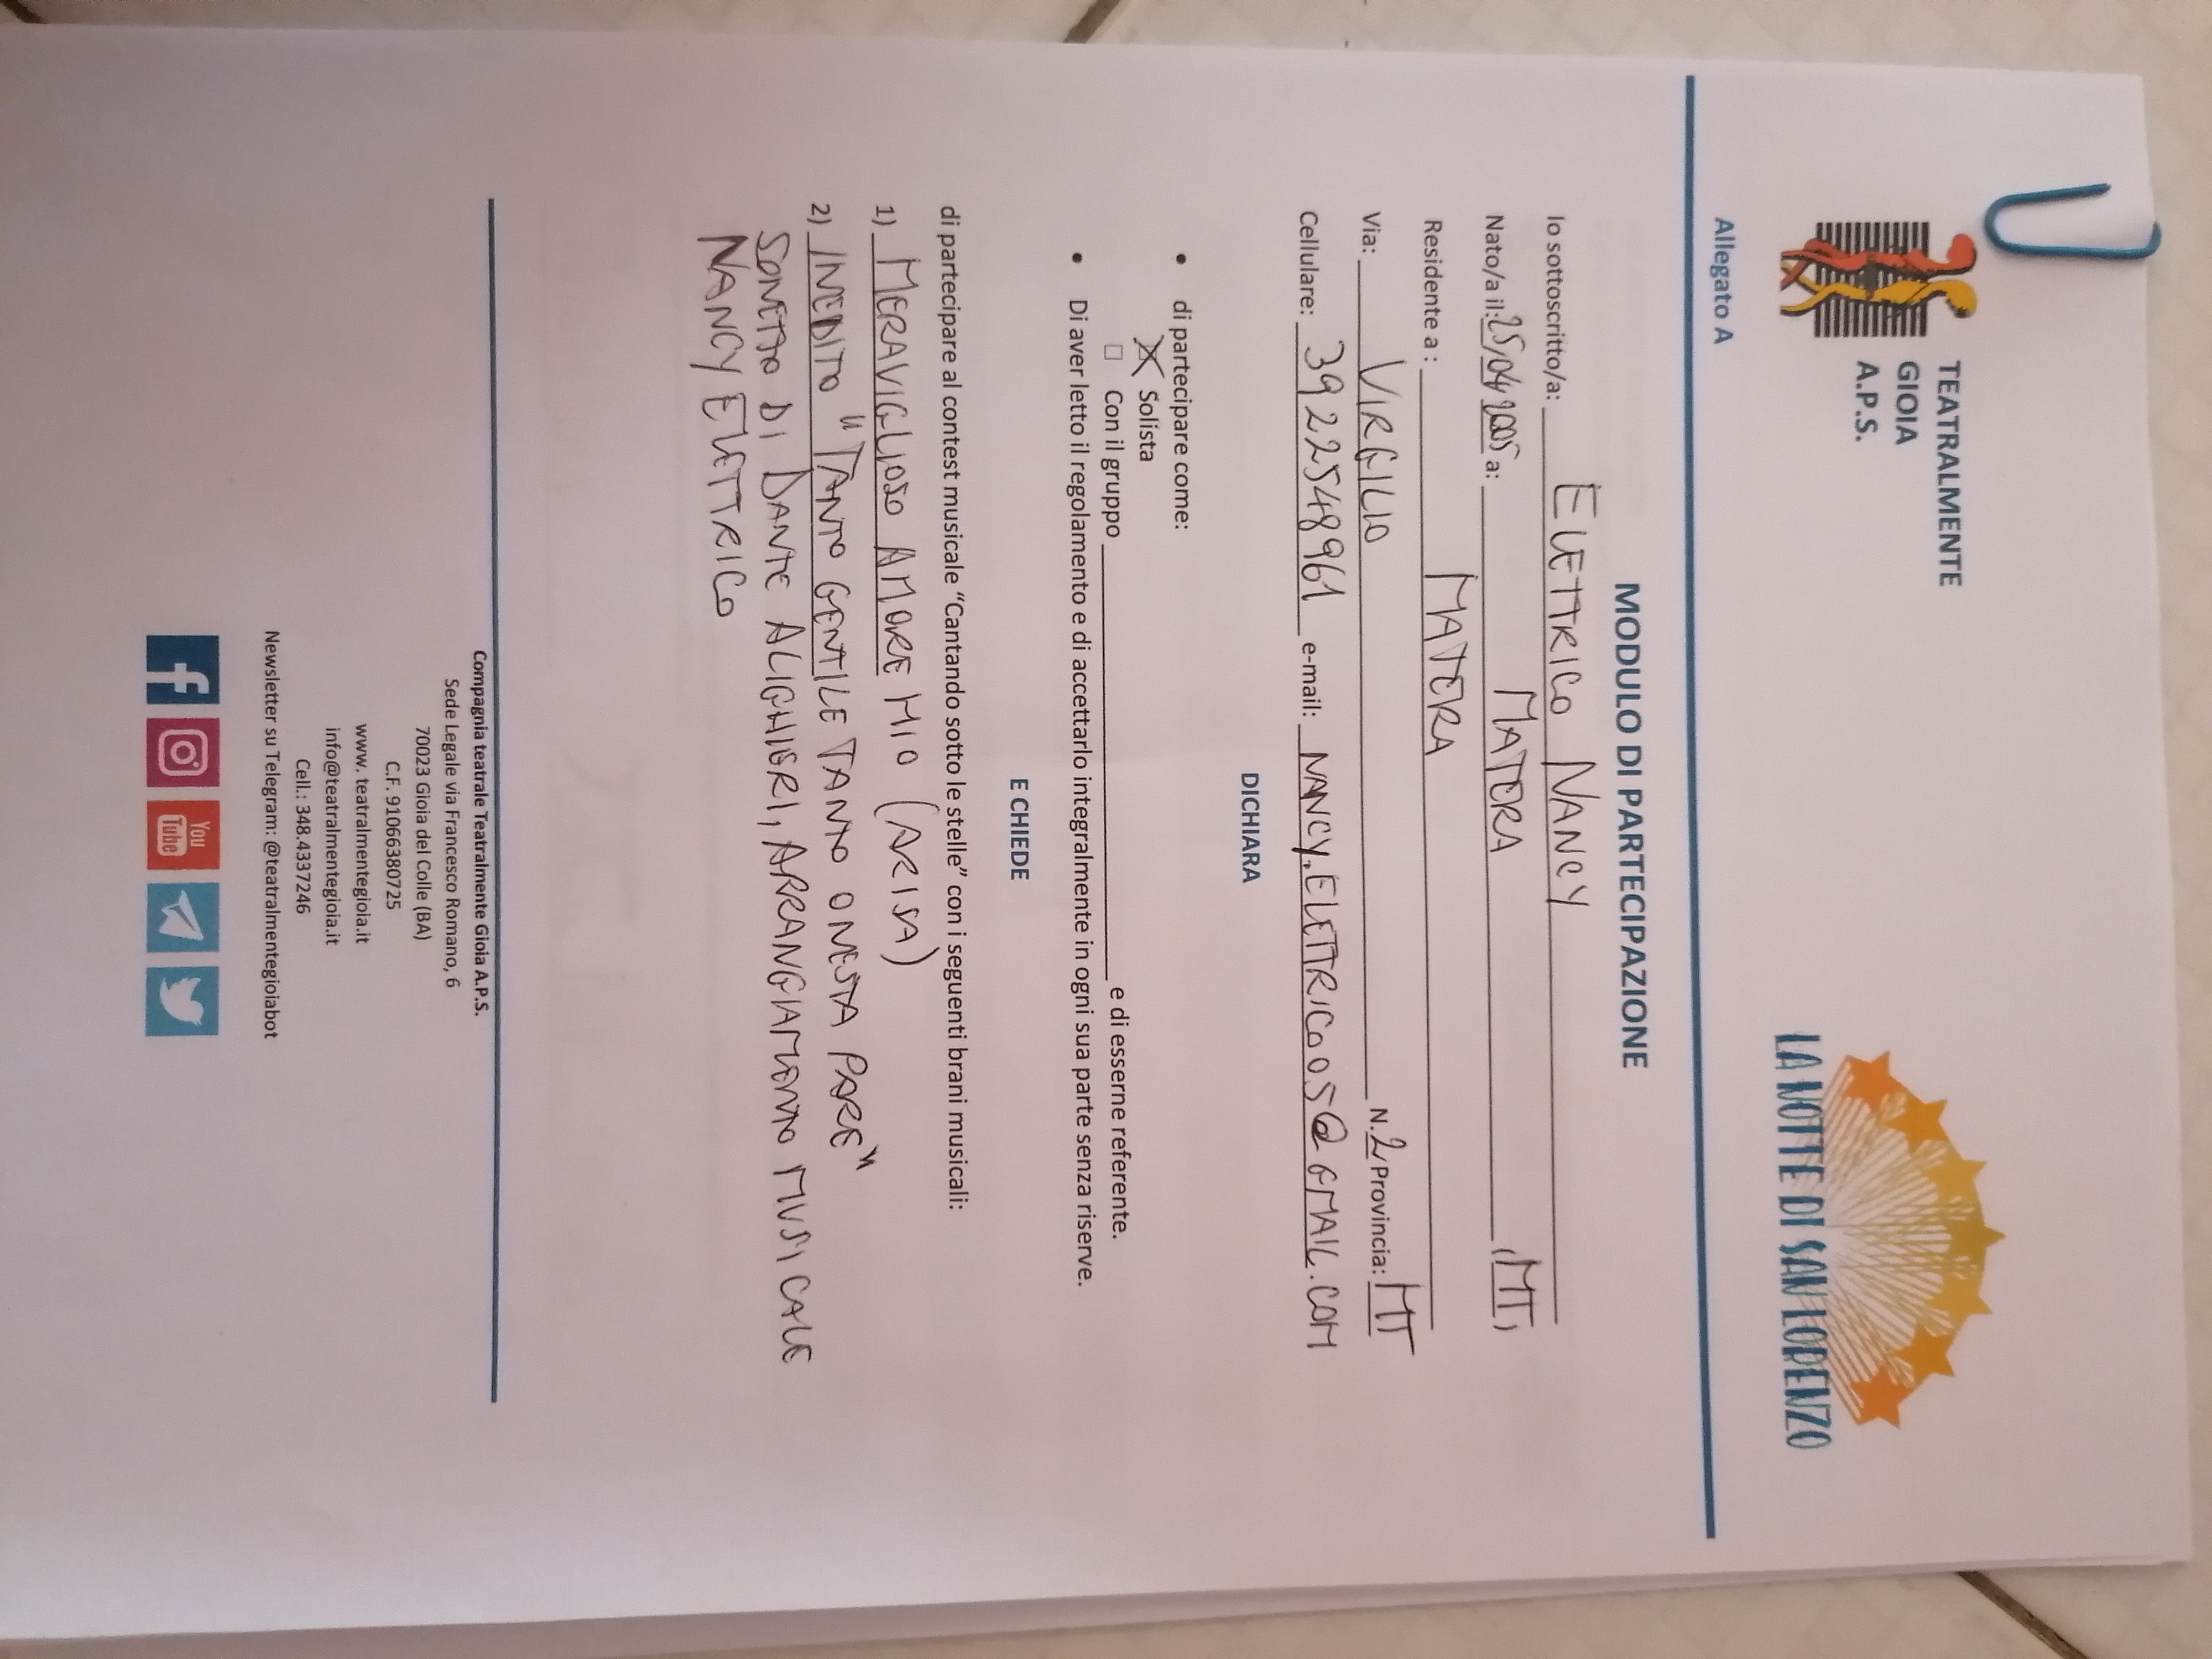 TEATRALMENTE
GIOIA
A.P.S.
LA NOTTE DI SAN LORENZO
Allegato A
MODULO DI PARTECIPAZIONE
Io sottoscritto/a: ELETTRICO NANCY
Nato/a il: 25/04/2005 a: MATERA (MT)
Residente a : MATERA
Via: VIRGILIO N. 2 Provincia: MT
Cellulare: 3922548961 e-mail: NANCY.ELETTRICO05@GMAIL.COM
DICHIARA
• di partecipare come:
☒ Solista
☐ Con il gruppo ____ e di esserne referente.
• Di aver letto il regolamento e di accettarlo integralmente in ogni sua parte senza riserve.
E CHIEDE
di partecipare al contest musicale “Cantando sotto le stelle” con i seguenti brani musicali:
1) MERAVIGLIOSO AMORE MIO (ARISA)
2) INEDITO "TANTO GENTILE TANTO ONESTA PARE"
SONETTO DI DANTE ALIGHIERI, ARRANGIAMENTO MUSICALE
NANCY ELETTRICO
Compagnia teatrale Teatralmente Gioia A.P.S.
Sede Legale via Francesco Romano, 6
70023 Gioia del Colle (BA)
C.F. 91066380725
www. teatralmentegioia.it
info@teatralmentegioia.it
Cell.: 348.4337246
Newsletter su Telegram: @teatralmentegioiabot
You
Tube